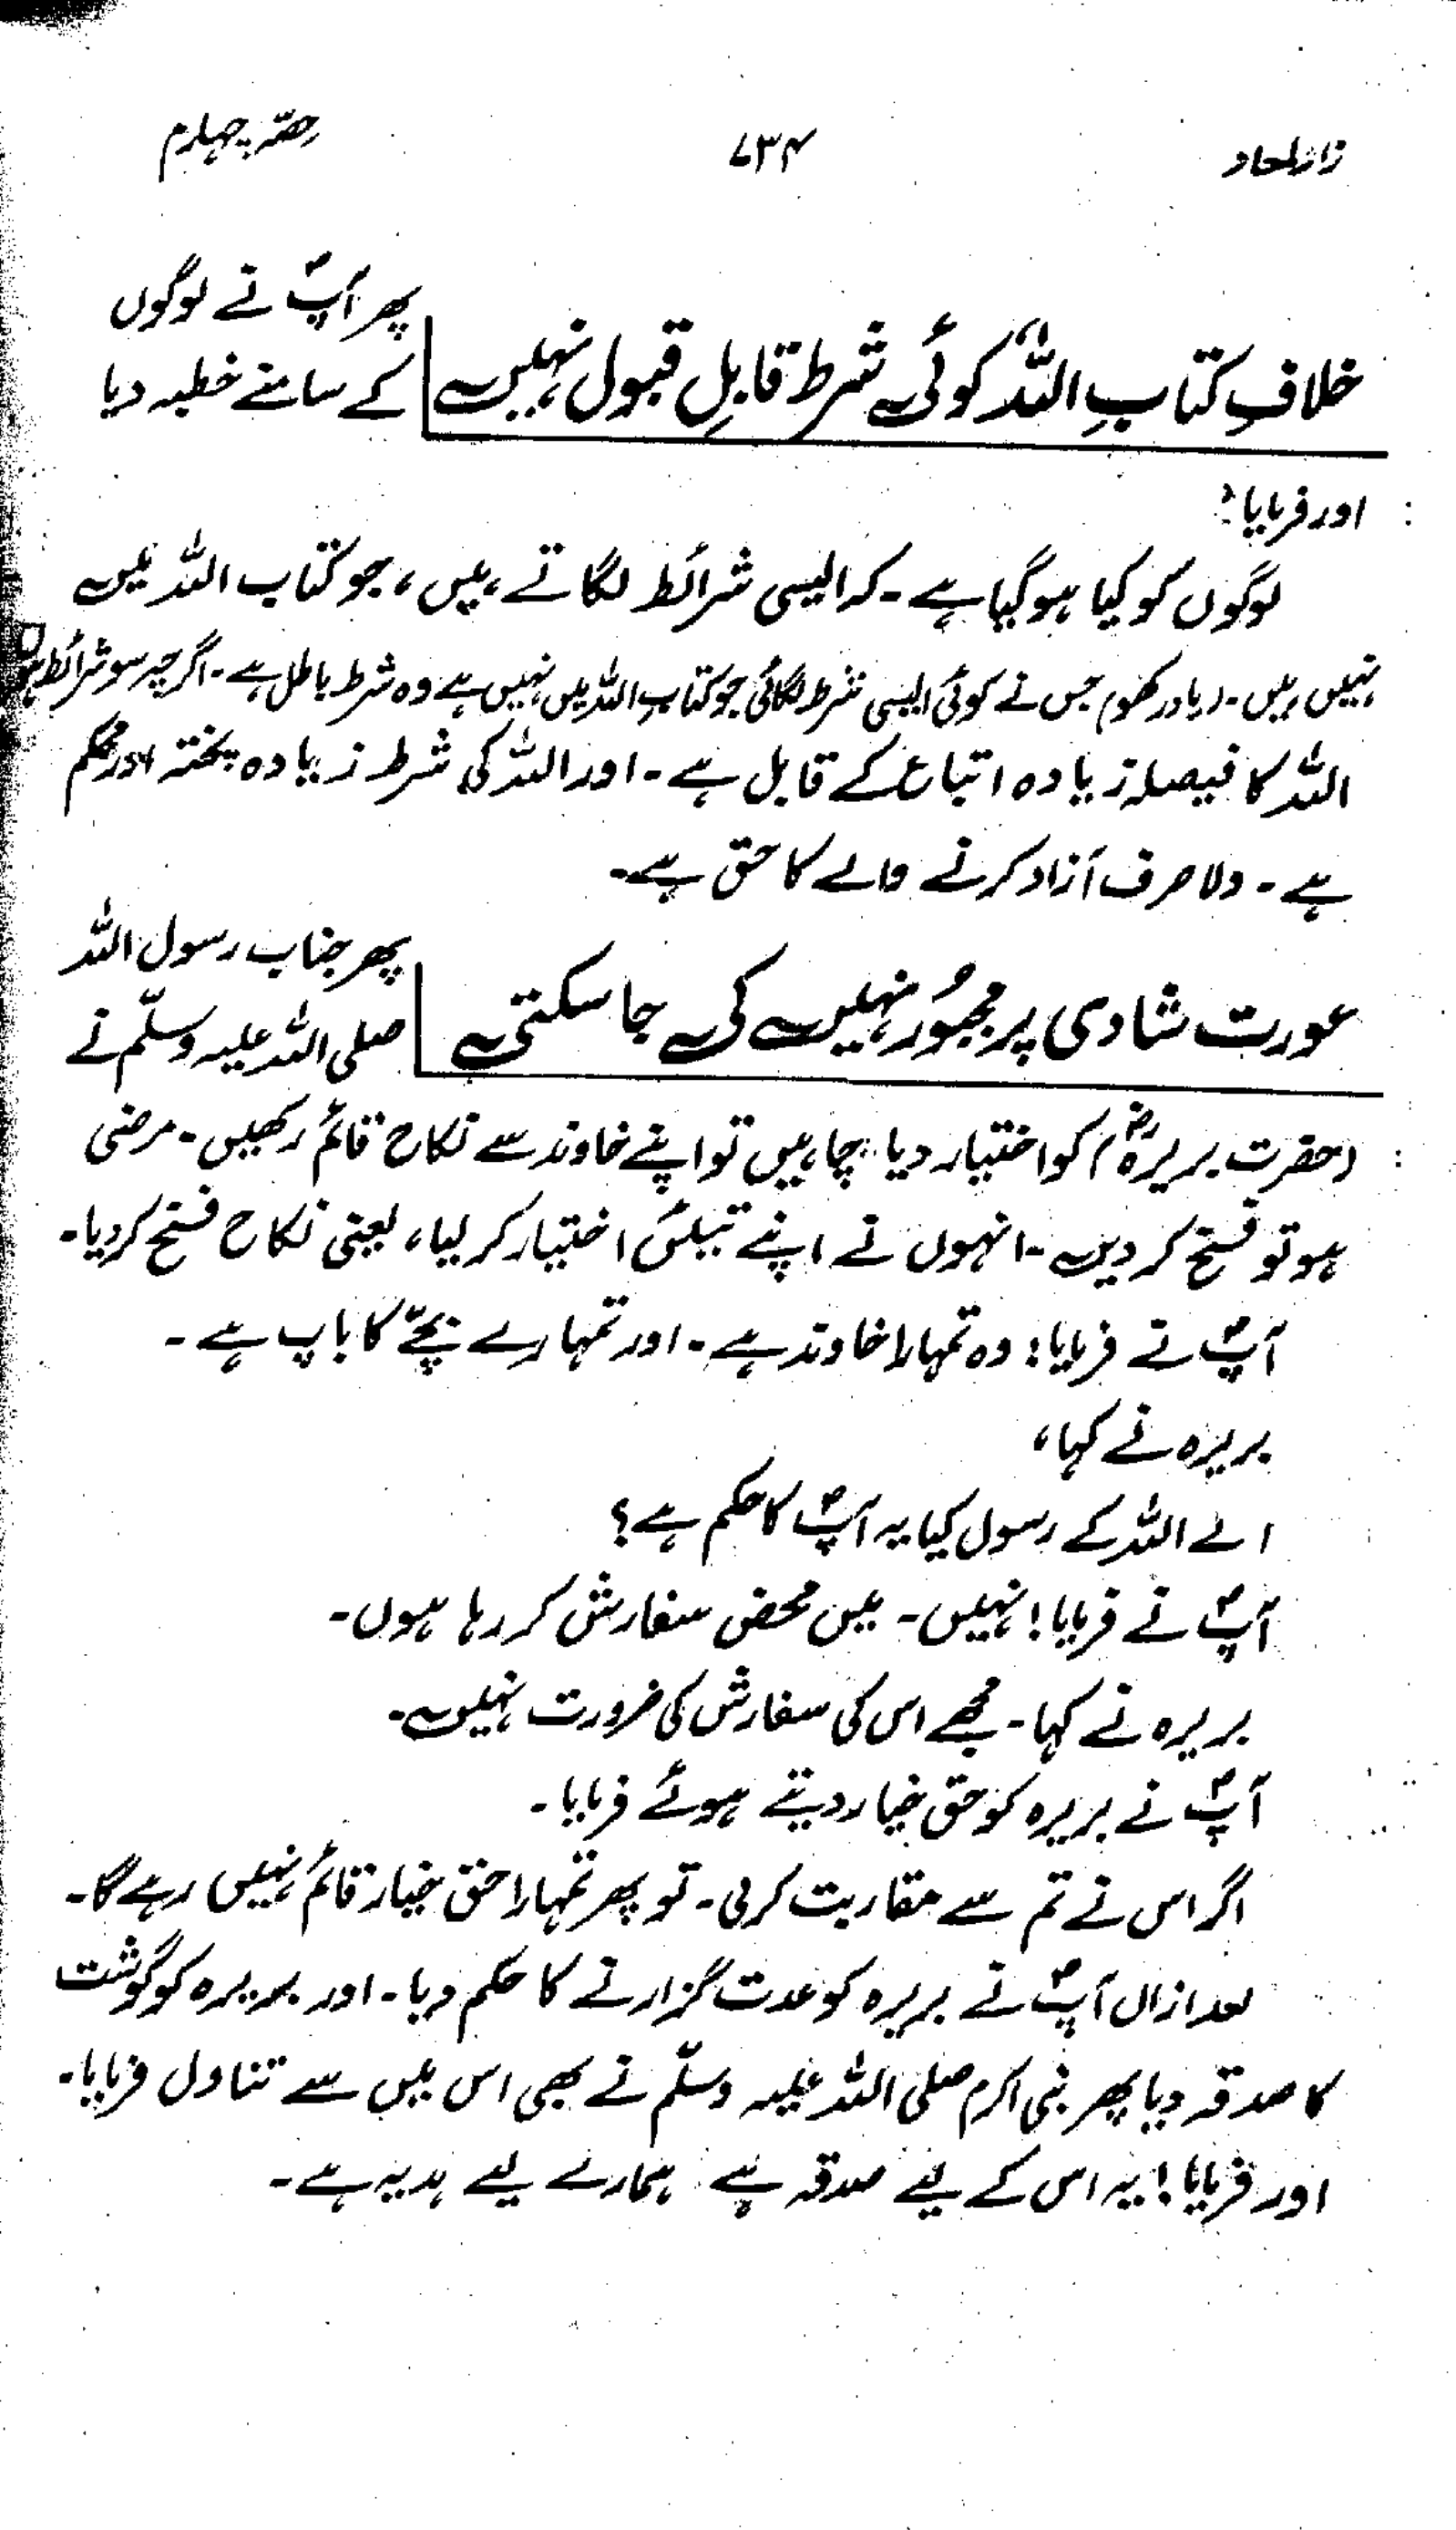 زاد المعاد ۷۳۴ حصّہ چہارم
پھر آپؐ نے لوگوں
خلافِ کتابِ اللہ کوئی شرط قابلِ قبول نہیں
کے سامنے خطبہ دیا
اور فرمایا:
لوگوں کو کیا ہوگیا ہے۔ کہ ایسی شرائط لگاتے ہیں، جو کتاب اللہ میں
نہیں ہیں۔ (یاد رکھو) جس نے کوئی ایسی شرط لگائی جو کتاب اللہ میں نہیں ہے وہ شرط باطل ہے۔ اگرچہ سو شرائط ہوں
اللہ کا فیصلہ زیادہ اتباع کے قابل ہے۔ اور اللہ کی شرط زیادہ پختہ اور محکم
ہے۔ ولا صرف آزاد کرنے والے کا حق ہے۔
پھر جناب رسول اللہ
عورت شادی پر مجبُور نہیں کی جا سکتی
صلی اللہ علیہ وسلّم نے
(حضرت بریرہؓ) کو اختیار دیا۔ چاہیں تو اپنے خاوند سے نکاح قائم رکھیں۔ مرضی
ہو تو فسخ کر دیں۔ انہوں نے اپنے تیئں اختیار کر لیا، یعنی نکاح فسخ کردیا۔
آپؐ نے فرمایا: وہ تمہارا خاوند ہے۔ اور تمہارے بچّے کا باپ ہے۔
بریرہ نے کہا،
اے اللہ کے رسول کیا یہ آپؐ کا حکم ہے؟
آپؐ نے فرمایا! نہیں۔ میں محض سفارش کر رہا ہوں۔
بریرہ نے کہا۔ مجھے اس کی سفارش کی ضرورت نہیں۔
آپؐ نے بریرہ کو حق خیار دیتے ہوئے فرمایا۔
اگر اس نے تم سے مقاربت کرلی۔ تو پھر تمہارا حق خیار قائم نہیں رہے گا۔
بعد ازاں آپؐ نے بریرہ کو عدت گزارنے کا حکم دیا۔ اور بریرہ کو گوشت
کا صدقہ دیا پھر نبی اکرم صلی اللہ علیہ وسلّم نے بھی اس میں سے تناول فرمایا۔
اور فرمایا! یہ اس کے لیے صدقہ ہے ہمارے لیے ہدیہ ہے۔